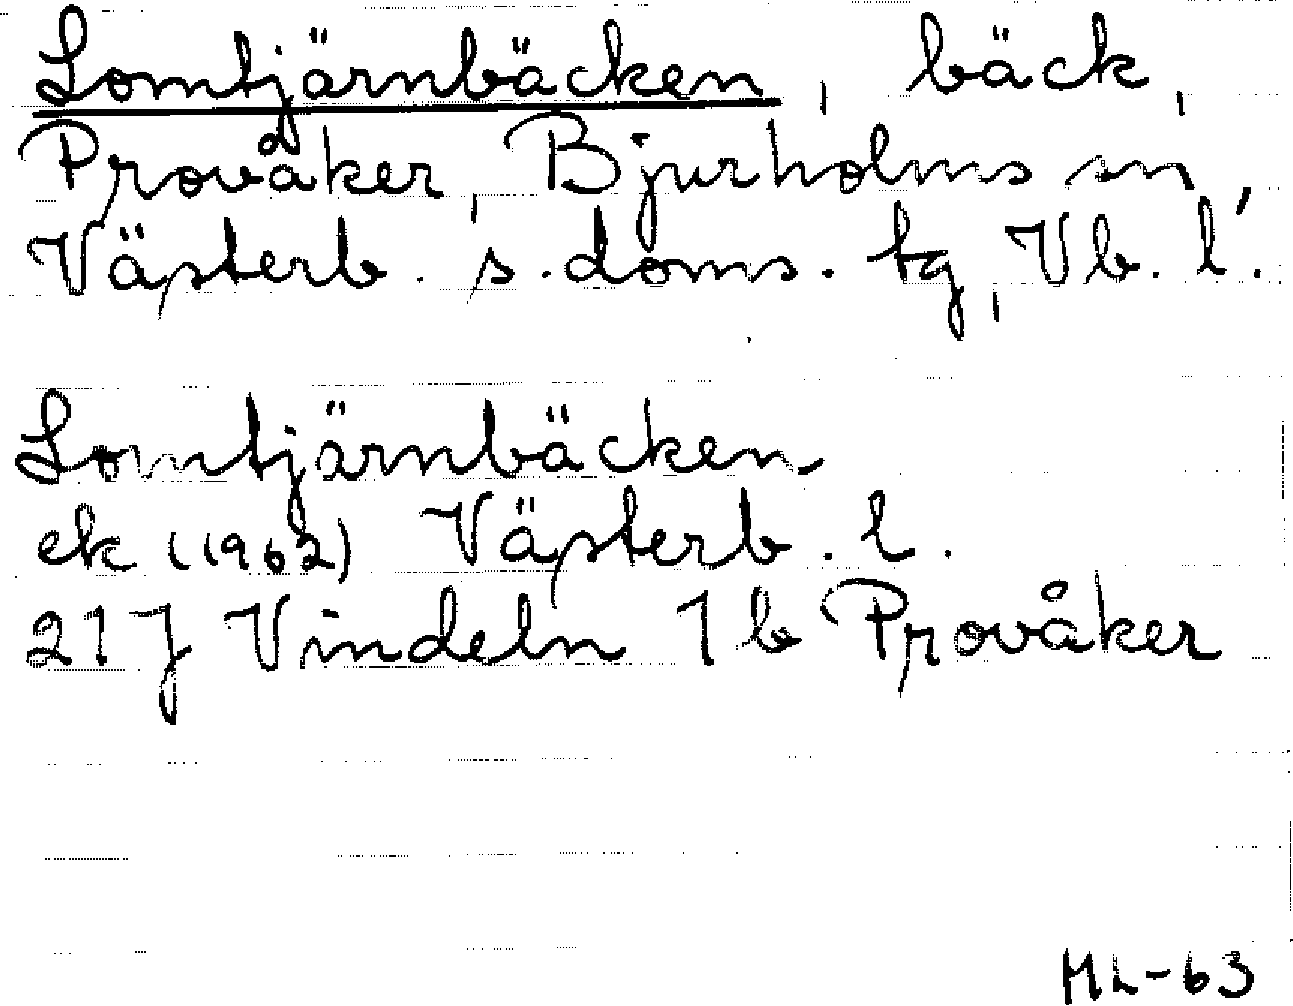 Lomtjärnbäcken, bäck,
Provåker, Bjurholms sn,
Västerb. s. doms. tg, Vb. l.
Lomtjärnbäcken
ek (1962) Västerb. l.
21 J Vindeln 1 b Provåker
ML-63